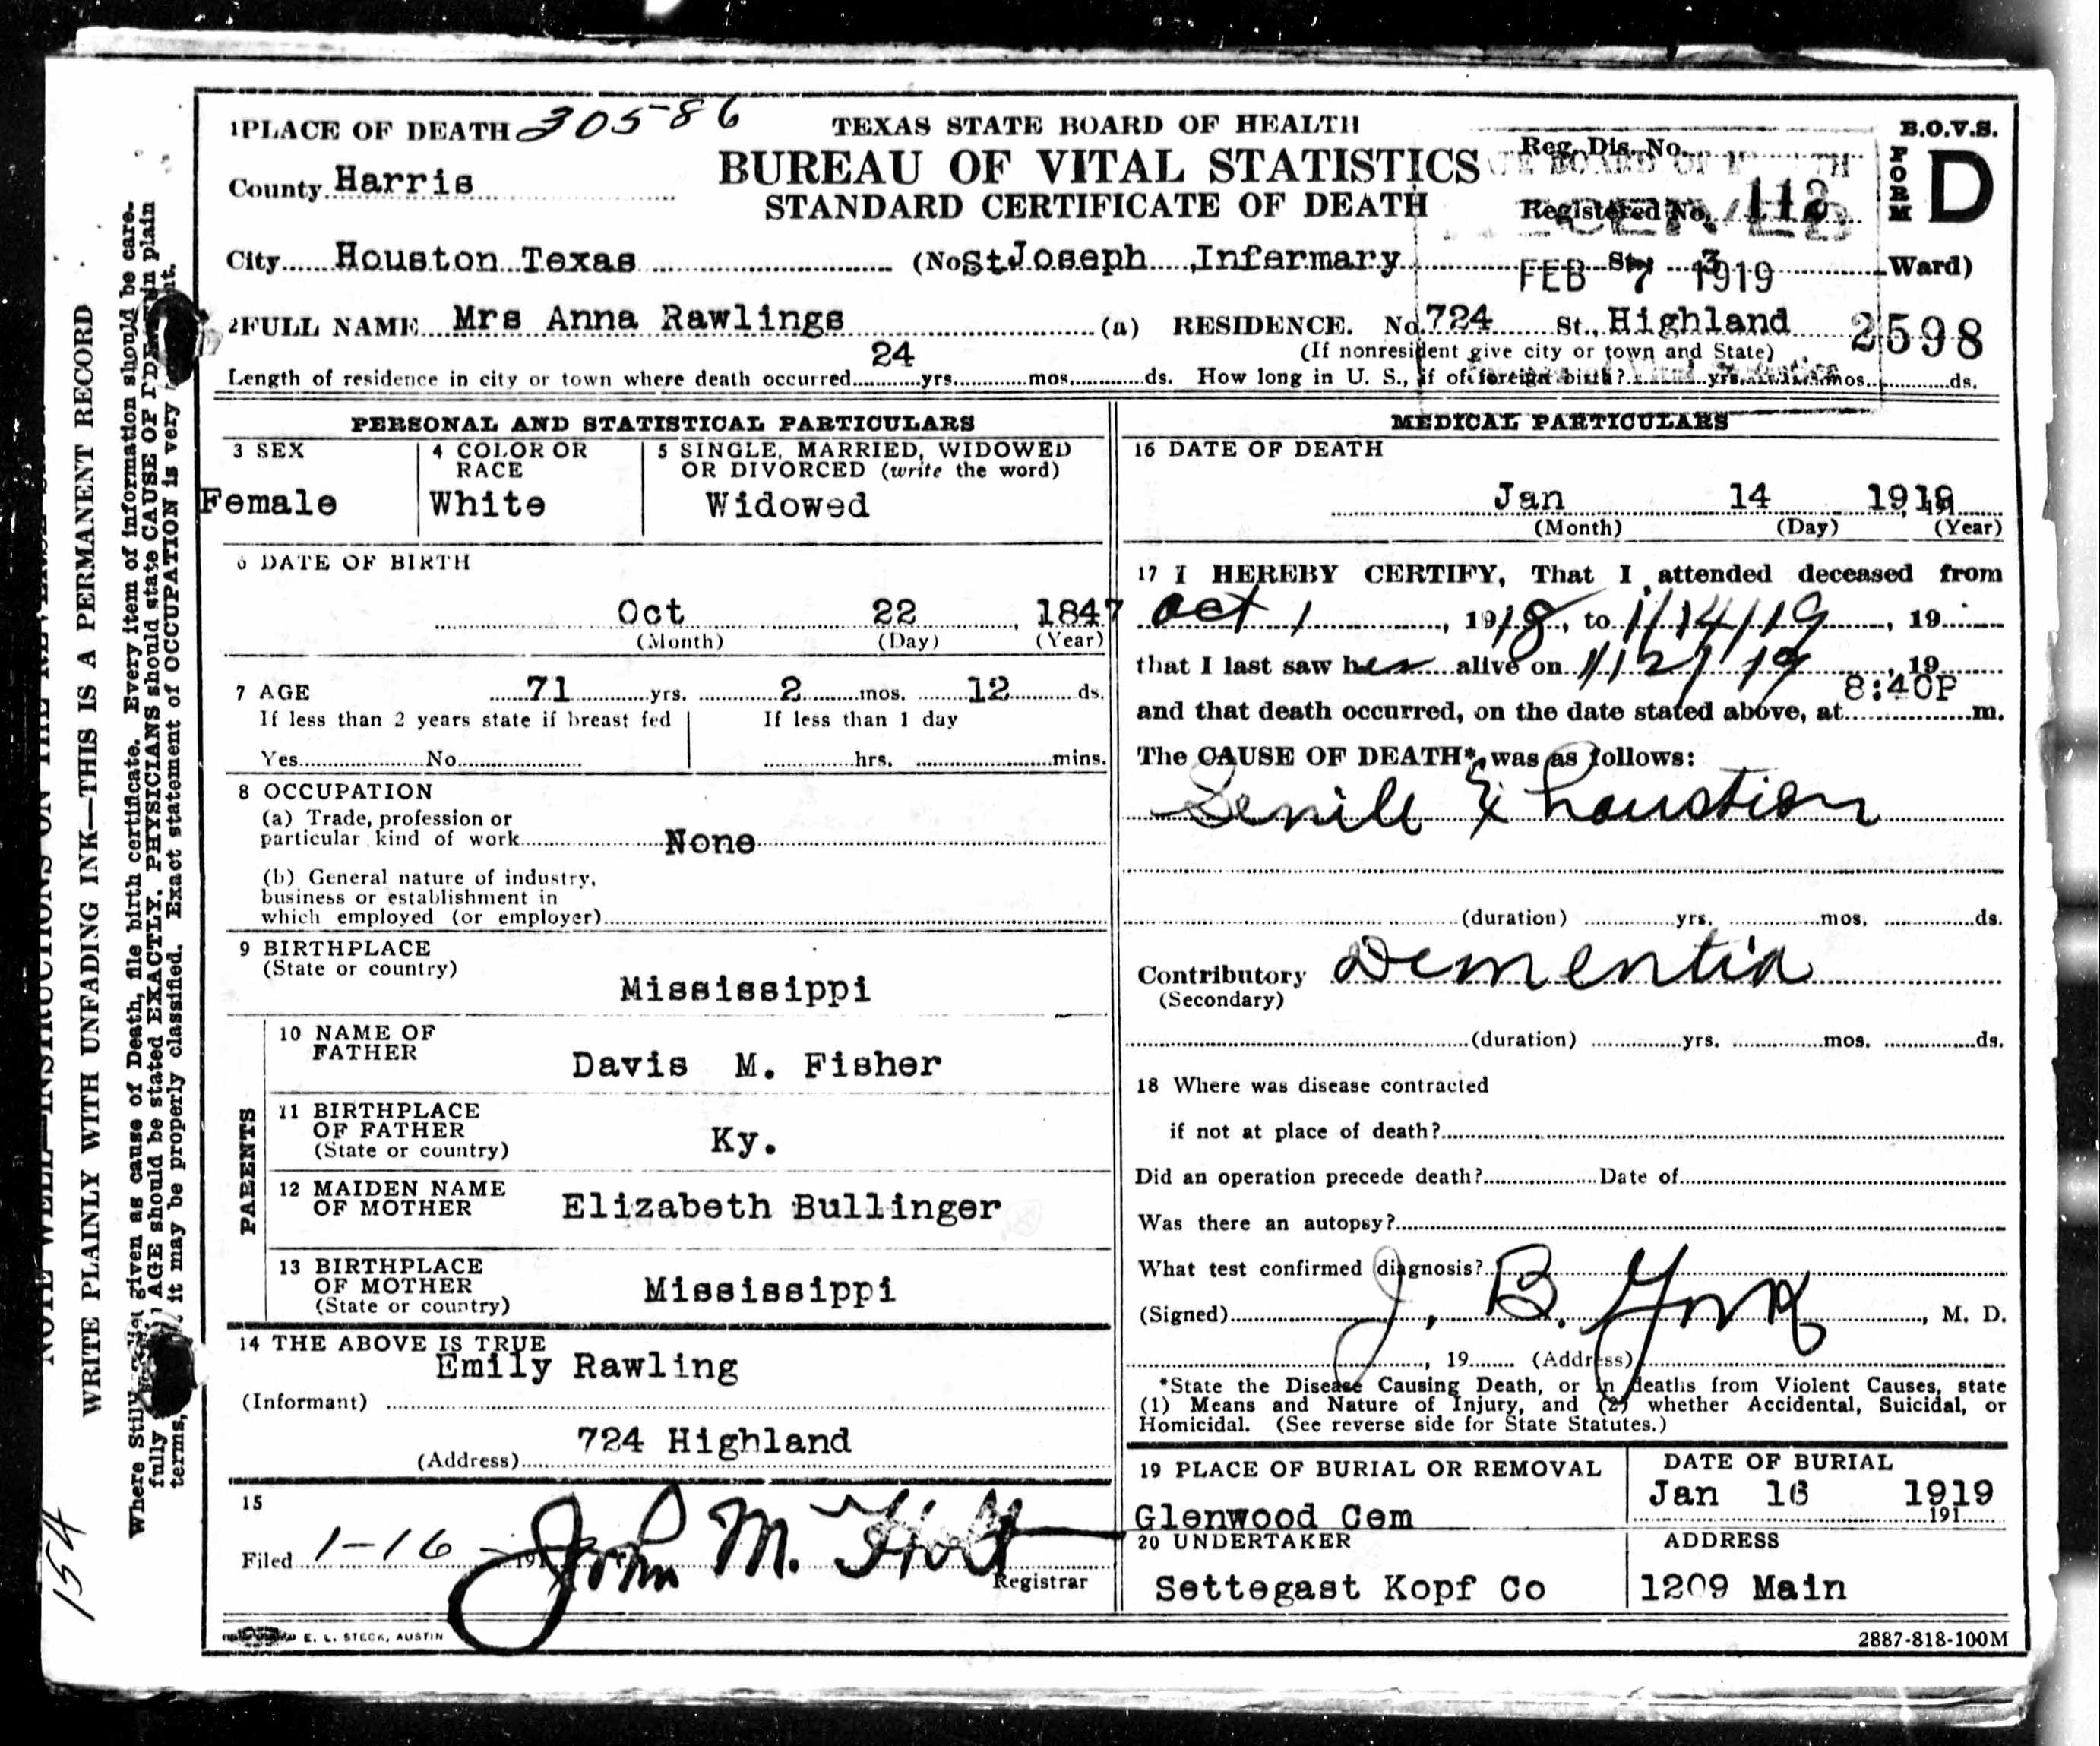 1 PLACE OF DEATH 305-86
County Harris
TEXAS STATE BOARD OF HEALTH
BUREAU OF VITAL STATISTICS
STANDARD CERTIFICATE OF DEATH
Reg. Dis. No.
Registered No. 112
B.O.V.S.
FORM D
City Houston Texas (No St Joseph Infermary St., 3 Ward)
FEB 7 1919
2 FULL NAME Mrs Anna Rawlings (a) RESIDENCE. No. 724 St., Highland
2598
(If nonresident give city or town and State)
Length of residence in city or town where death occurred 24 yrs. mos. ds. How long in U. S., if of foreign birth? yrs. mos. ds.
PERSONAL AND STATISTICAL PARTICULARS
3 SEX
Female
4 COLOR OR RACE
White
5 SINGLE, MARRIED, WIDOWED
OR DIVORCED (write the word)
Widowed
6 DATE OF BIRTH
Oct 22, 1847
(Month) (Day) (Year)
7 AGE 71 yrs. 2 mos. 12 ds.
If less than 2 years state if breast fed
Yes No
If less than 1 day
hrs. mins.
8 OCCUPATION
(a) Trade, profession or
particular kind of work None
(b) General nature of industry,
business or establishment in
which employed (or employer)
9 BIRTHPLACE
(State or country)
Mississippi
PARENTS
10 NAME OF
FATHER
Davis M. Fisher
11 BIRTHPLACE
OF FATHER
(State or country)
Ky.
12 MAIDEN NAME
OF MOTHER
Elizabeth Bullinger
13 BIRTHPLACE
OF MOTHER
(State or country)
Mississippi
14 THE ABOVE IS TRUE
Emily Rawling
(Informant)
724 Highland
(Address)
15
Filed 1-16 191 John M. Holt
Registrar
E. L. STECK, AUSTIN
MEDICAL PARTICULARS
16 DATE OF DEATH
Jan 14 1919
(Month) (Day) (Year)
17 I HEREBY CERTIFY, That I attended deceased from
Oct 1, 1918, to 1/14/19, 19
that I last saw her alive on 1/12/19, 19
and that death occurred, on the date stated above, at 8:40P m.
The CAUSE OF DEATH* was as follows:
Senile Exhaustion
(duration) yrs. mos. ds.
Contributory Dementia
(Secondary)
(duration) yrs. mos. ds.
18 Where was disease contracted
if not at place of death?
Did an operation precede death? Date of
Was there an autopsy?
What test confirmed diagnosis?
(Signed) J. B. York, M. D.
, 19 (Address)
*State the Disease Causing Death, or in deaths from Violent Causes, state
(1) Means and Nature of Injury, and (2) whether Accidental, Suicidal, or
Homicidal. (See reverse side for State Statutes.)
19 PLACE OF BURIAL OR REMOVAL
Glenwood Cem
DATE OF BURIAL
Jan 16 1919
191
20 UNDERTAKER
Settegast Kopf Co
ADDRESS
1209 Main
2887-818-100M
WRITE PLAINLY WITH UNFADING INK—THIS IS A PERMANENT RECORD
given as cause of Death, file birth certificate. Every item of information should be care-
fully AGE should be stated EXACTLY. PHYSICIANS should state CAUSE OF DEATH in plain
terms, it may be properly classified. Exact statement of OCCUPATION is very
154